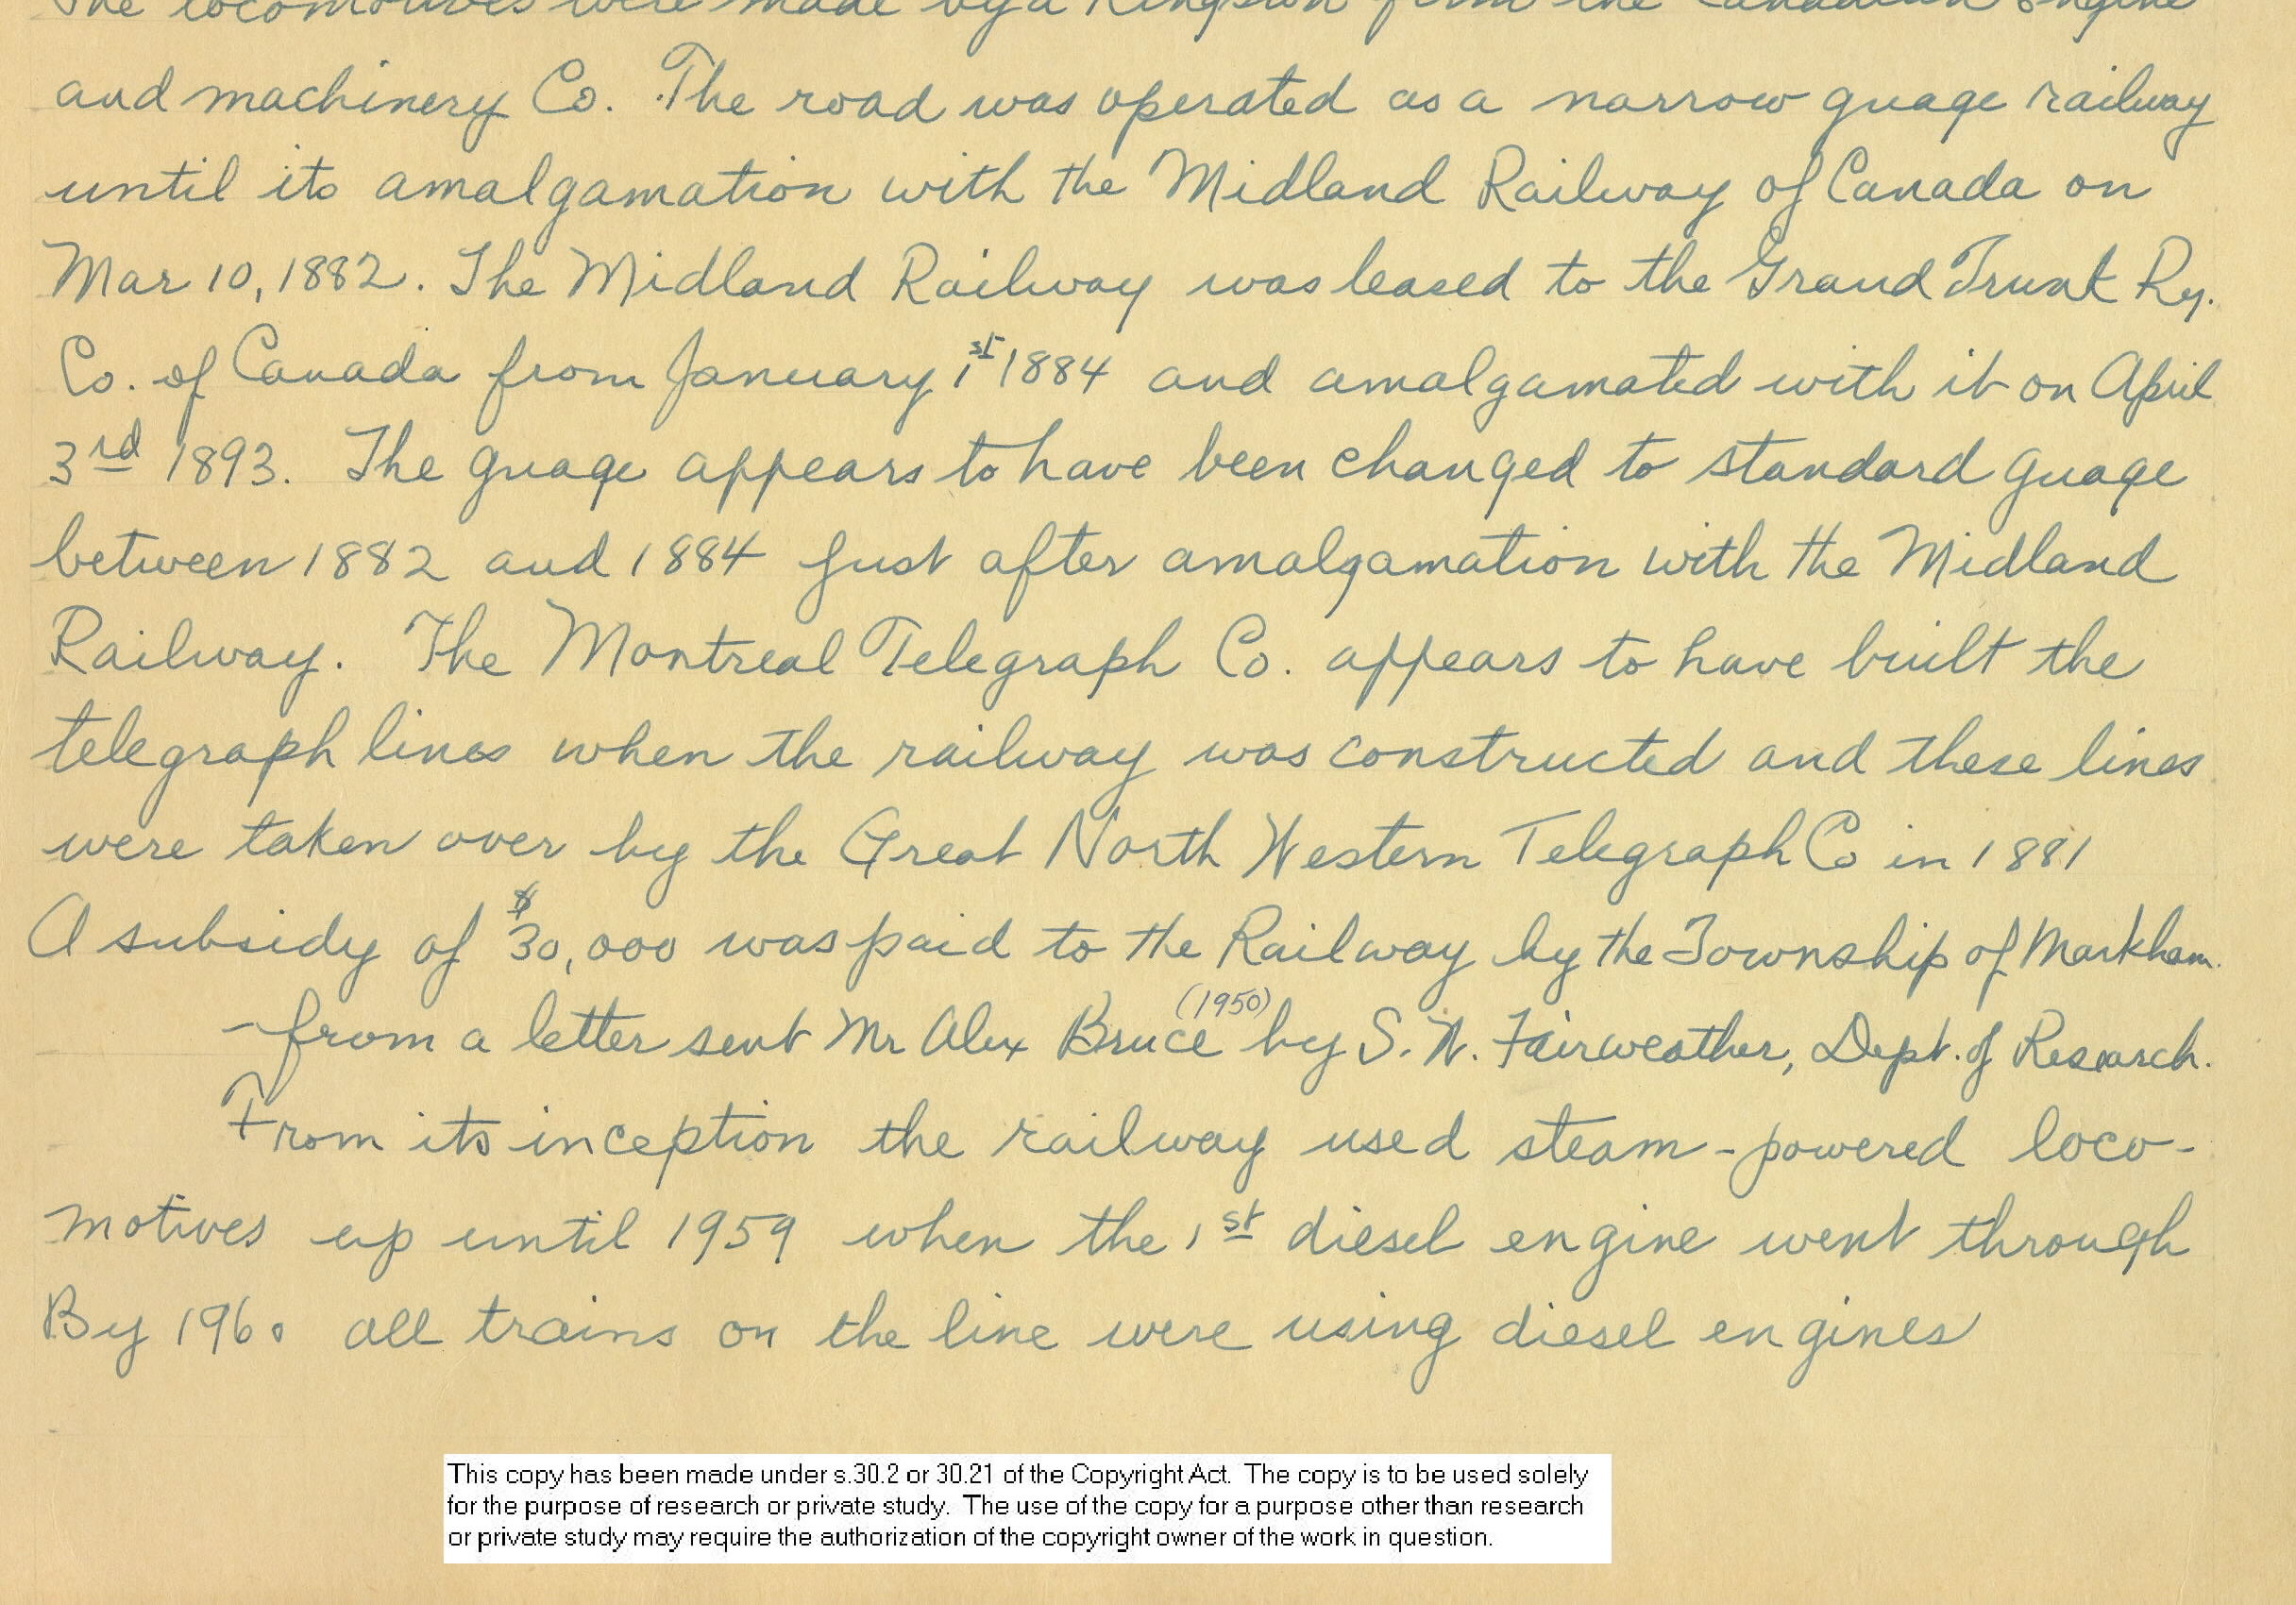 The locomotives were made by a Kingston firm the Canadian Engine
and machinery Co. The road was operated as a narrow guage railway
until its amalgamation with the Midland Railway of Canada on
Mar 10, 1882. The Midland Railway was leased to the Grand Trunk Ry.
Co. of Canada from January 1st 1884 and amalgamated with it on April
3rd 1893. The guage appears to have been changed to standard guage
between 1882 and 1884 just after amalgamation with the Midland
Railway. The Montreal Telegraph Co. appears to have built the
telegraph lines when the railway was constructed and these lines
were taken over by the Great North Western Telegraph Co in 1881
A subsidy of $30,000 was paid to the Railway by the Township of Markham.
- from a letter sent Mr Alex Bruce (1950) by S. W. Fairweather, Dept. of Research.
From its inception the railway used steam-powered loco-
motives up until 1959 when the 1st diesel engine went through
By 1960 all trains on the line were using diesel engines
This copy has been made under s.30.2 or 30.21 of the Copyright Act. The copy is to be used solely
for the purpose of research or private study. The use of the copy for a purpose other than research
or private study may require the authorization of the copyright owner of the work in question.